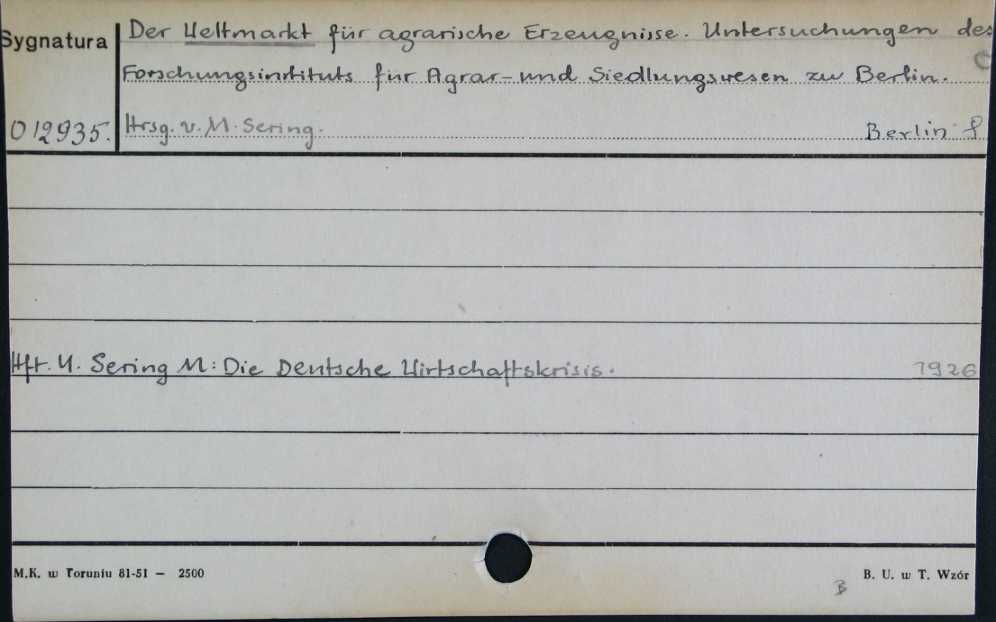 Sygnatura
Der Weltmarkt für agrarische Erzeugnisse. Untersuchungen des
Forschungsinstituts für Agrar- und Siedlungswesen zu Berlin.
012935. Hrsg. v. M. Sering. Berlin 8
Hft. 4. Sering M: Die Deutsche Wirtschaftskrisis. 1926
M.K. w Toruniu 81-51 — 2500
B. U. w T. Wzór
B